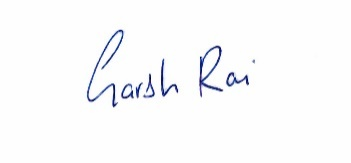 Garsh Rai